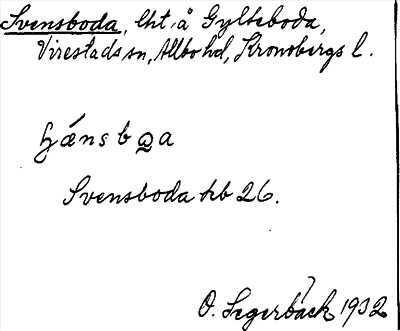 Svensboda, lht. å Gylteboda,
Virestads sn, Allbo hd, Kronobergs l.
Svensboda hb 26.
O. Segerbäck 1932